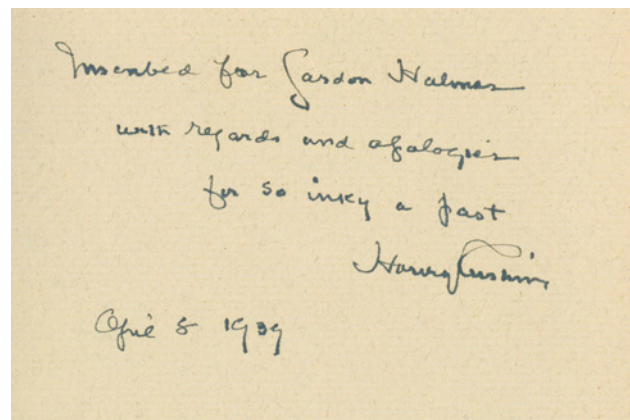 Inscribed for Gordon Holmes
with regards and apologies
for so inky a past
Harvey Cushing
April 8 1939